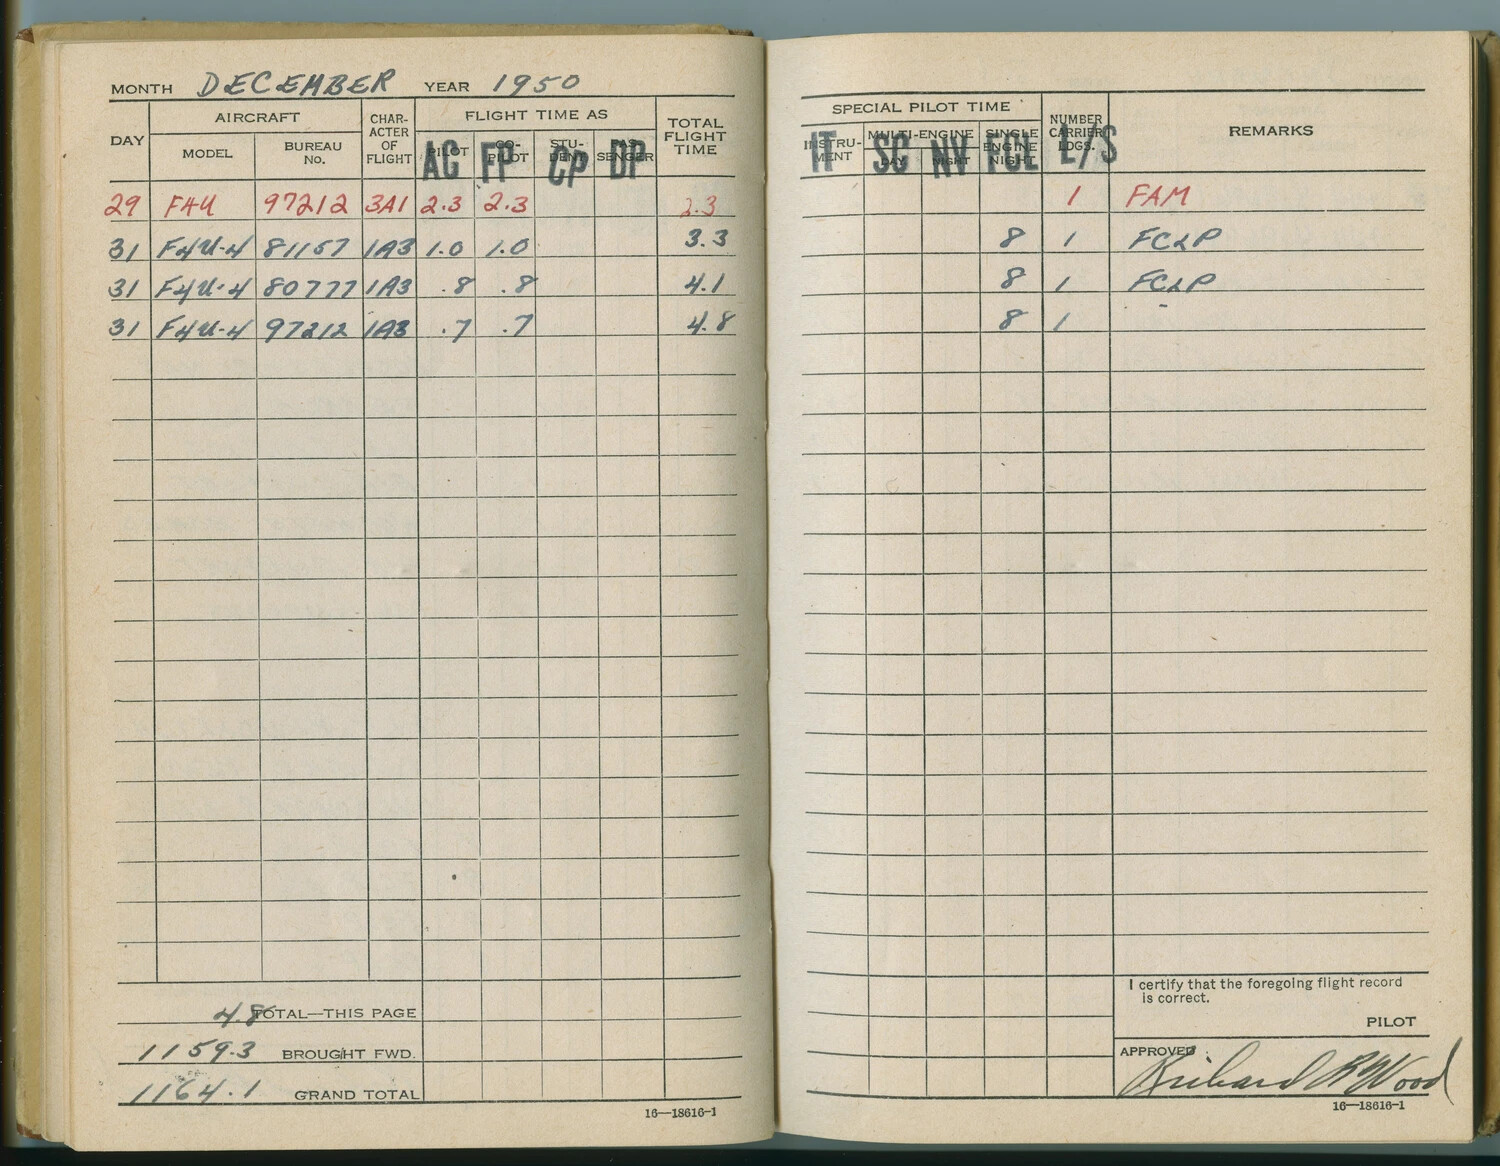 MONTH DECEMBER YEAR 1950
DAY AIRCRAFT CHAR-ACTER OF FLIGHT FLIGHT TIME AS TOTAL FLIGHT TIME
MODEL BUREAU No. PILOT CO-PILOT STU-DENT PAS-SENGER
AC FP CP DP
29 F4U 97212 3A1 2.3 2.3 2.3
31 F4U-4 81157 1A3 1.0 1.0 3.3
31 F4U-4 80777 1A3 .8 .8 4.1
31 F4U-4 97212 1A3 .7 .7 4.8
4.8 TOTAL—THIS PAGE
1159.3 BROUGHT FWD.
1164.1 GRAND TOTAL
16—18616-1
SPECIAL PILOT TIME NUMBER CARRIER LDGS. REMARKS
INSTRU-MENT MULTI-ENGINE SINGLE ENGINE NIGHT
DAY NIGHT
IT SC NV FCL L/S
1 FAM
8 1 FCLP
8 1 FCLP
8 1
I certify that the foregoing flight record
is correct.
PILOT
APPROVED:
Richard R Wood
16—18616-1